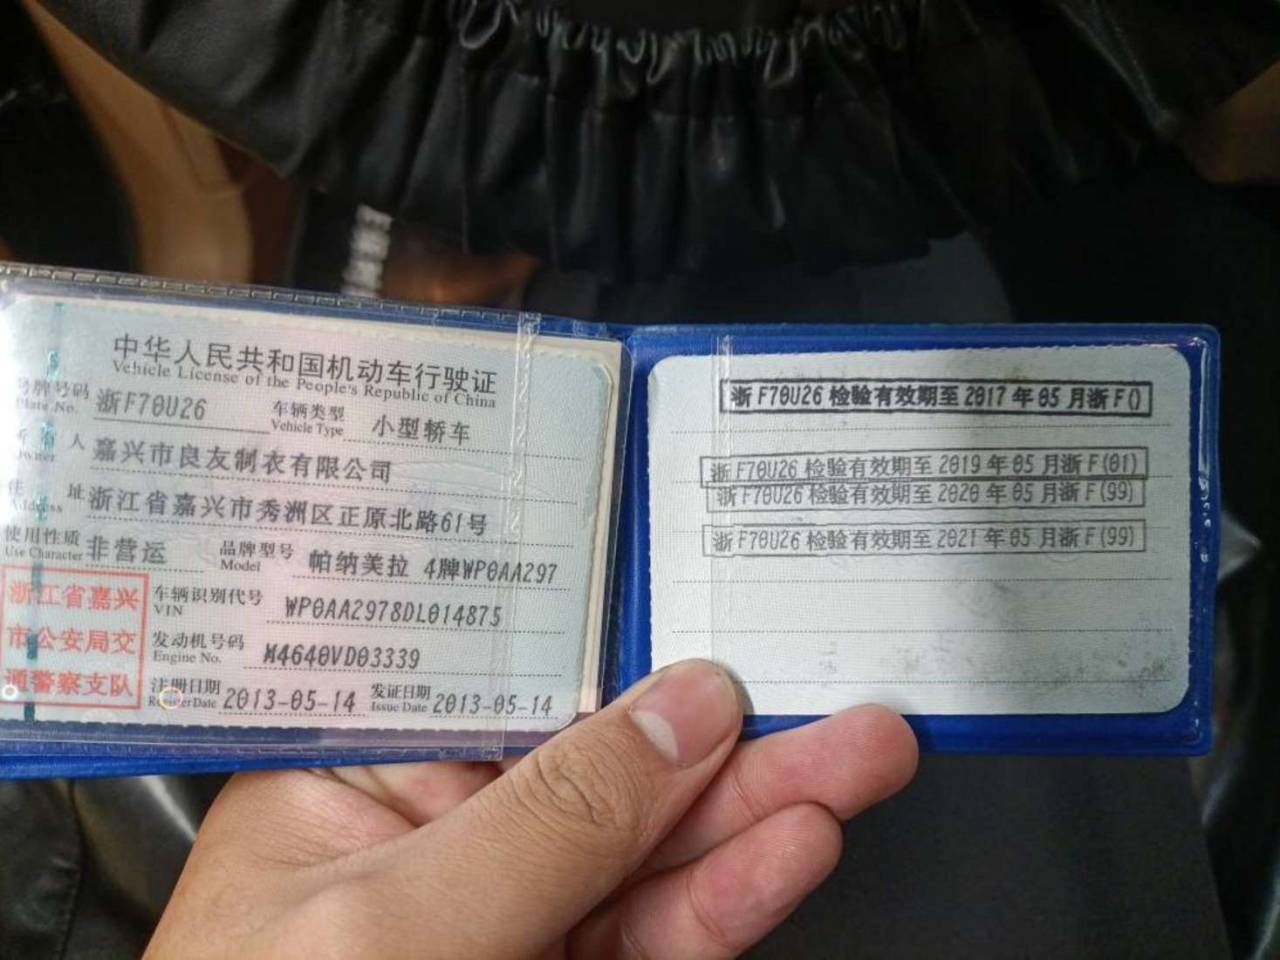 中华人民共和国机动车行驶证
Vehicle License of the People's Republic of China
号牌号码 浙F70U26 车辆类型 小型轿车
Plate No. Vehicle Type
所有人 嘉兴市良友制衣有限公司
Owner
住址 浙江省嘉兴市秀洲区正原北路61号
Address
使用性质 非营运 品牌型号 帕纳美拉 4牌WP0AA297
Use Character Model
车辆识别代号 WP0AA2978DL014875
VIN
发动机号码 M4640VD03339
Engine No.
注册日期 2013-05-14 发证日期 2013-05-14
Register Date Issue Date
浙江省嘉兴
市公安局交
通警察支队
浙F70U26 检验有效期至2017年05月浙F()
浙F70U26 检验有效期至2019年05月浙F(01)
浙F70U26 检验有效期至2020年05月浙F(99)
浙F70U26 检验有效期至2021年05月浙F(99)